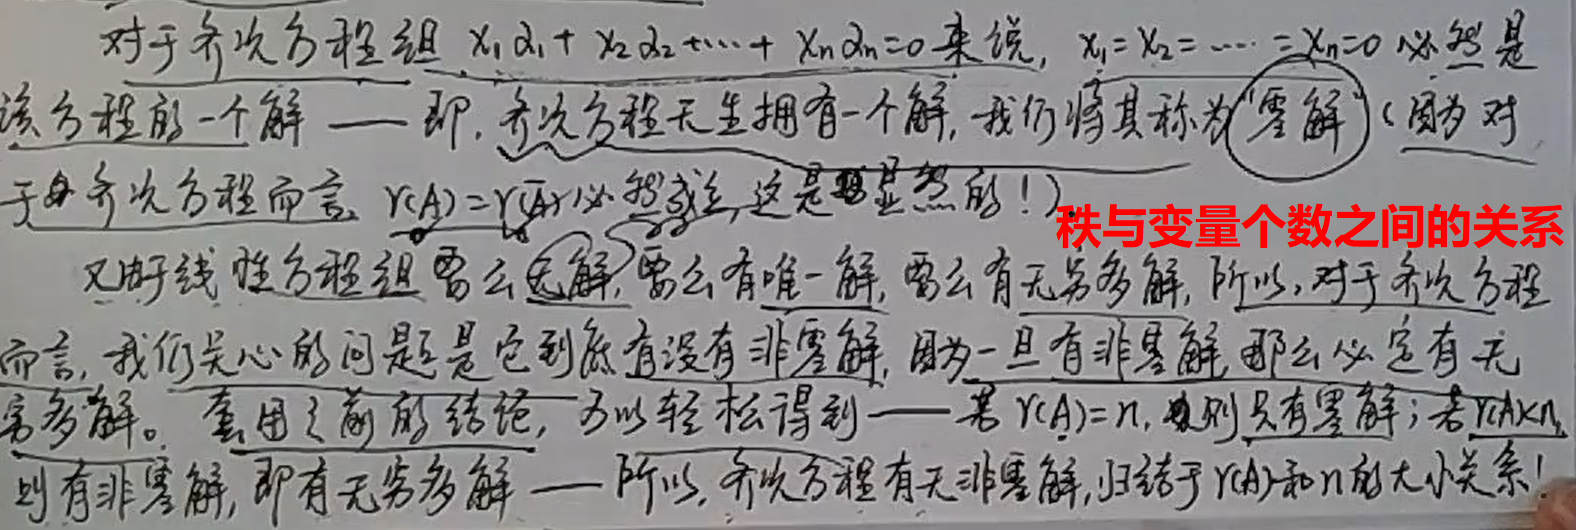 对于齐次方程组 x₁α₁+x₂α₂+……+xₙαₙ=0来说, x₁=x₂=……=xₙ=0必然是
该方程的一个解——即,齐次方程天生拥有一个解,我们将其称为“零解”(因为对
于齐次方程而言, r(A)=r(Ā)必然成立,这是显然的!).
秩与变量个数之间的关系
又由于线性方程组要么无解,要么有唯一解,要么有无穷多解,所以,对于齐次方程
而言,我们关心的问题是它到底有没有非零解,因为一旦有非零解,那么必定有无
穷多解。套用之前的结论,可以轻松得到——若r(A)=n,则只有零解;若r(A)<n,
则有非零解,即有无穷多解——所以,齐次方程有无非零解,归结于r(A)和n的大小关系!